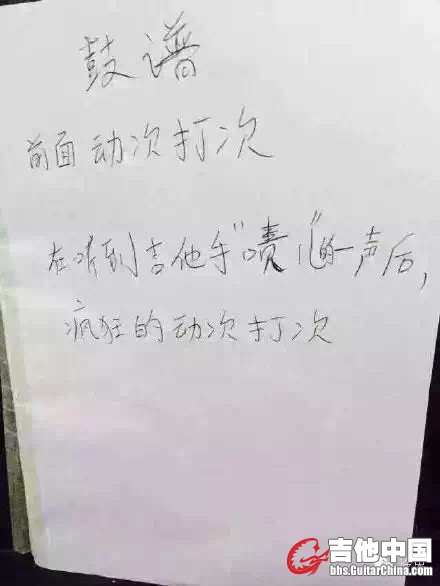 鼓谱
前面动次打次
在听到吉他手"啧儿"的一声后,
疯狂的动次打次
吉他中国
bbs.GuitarChina.com